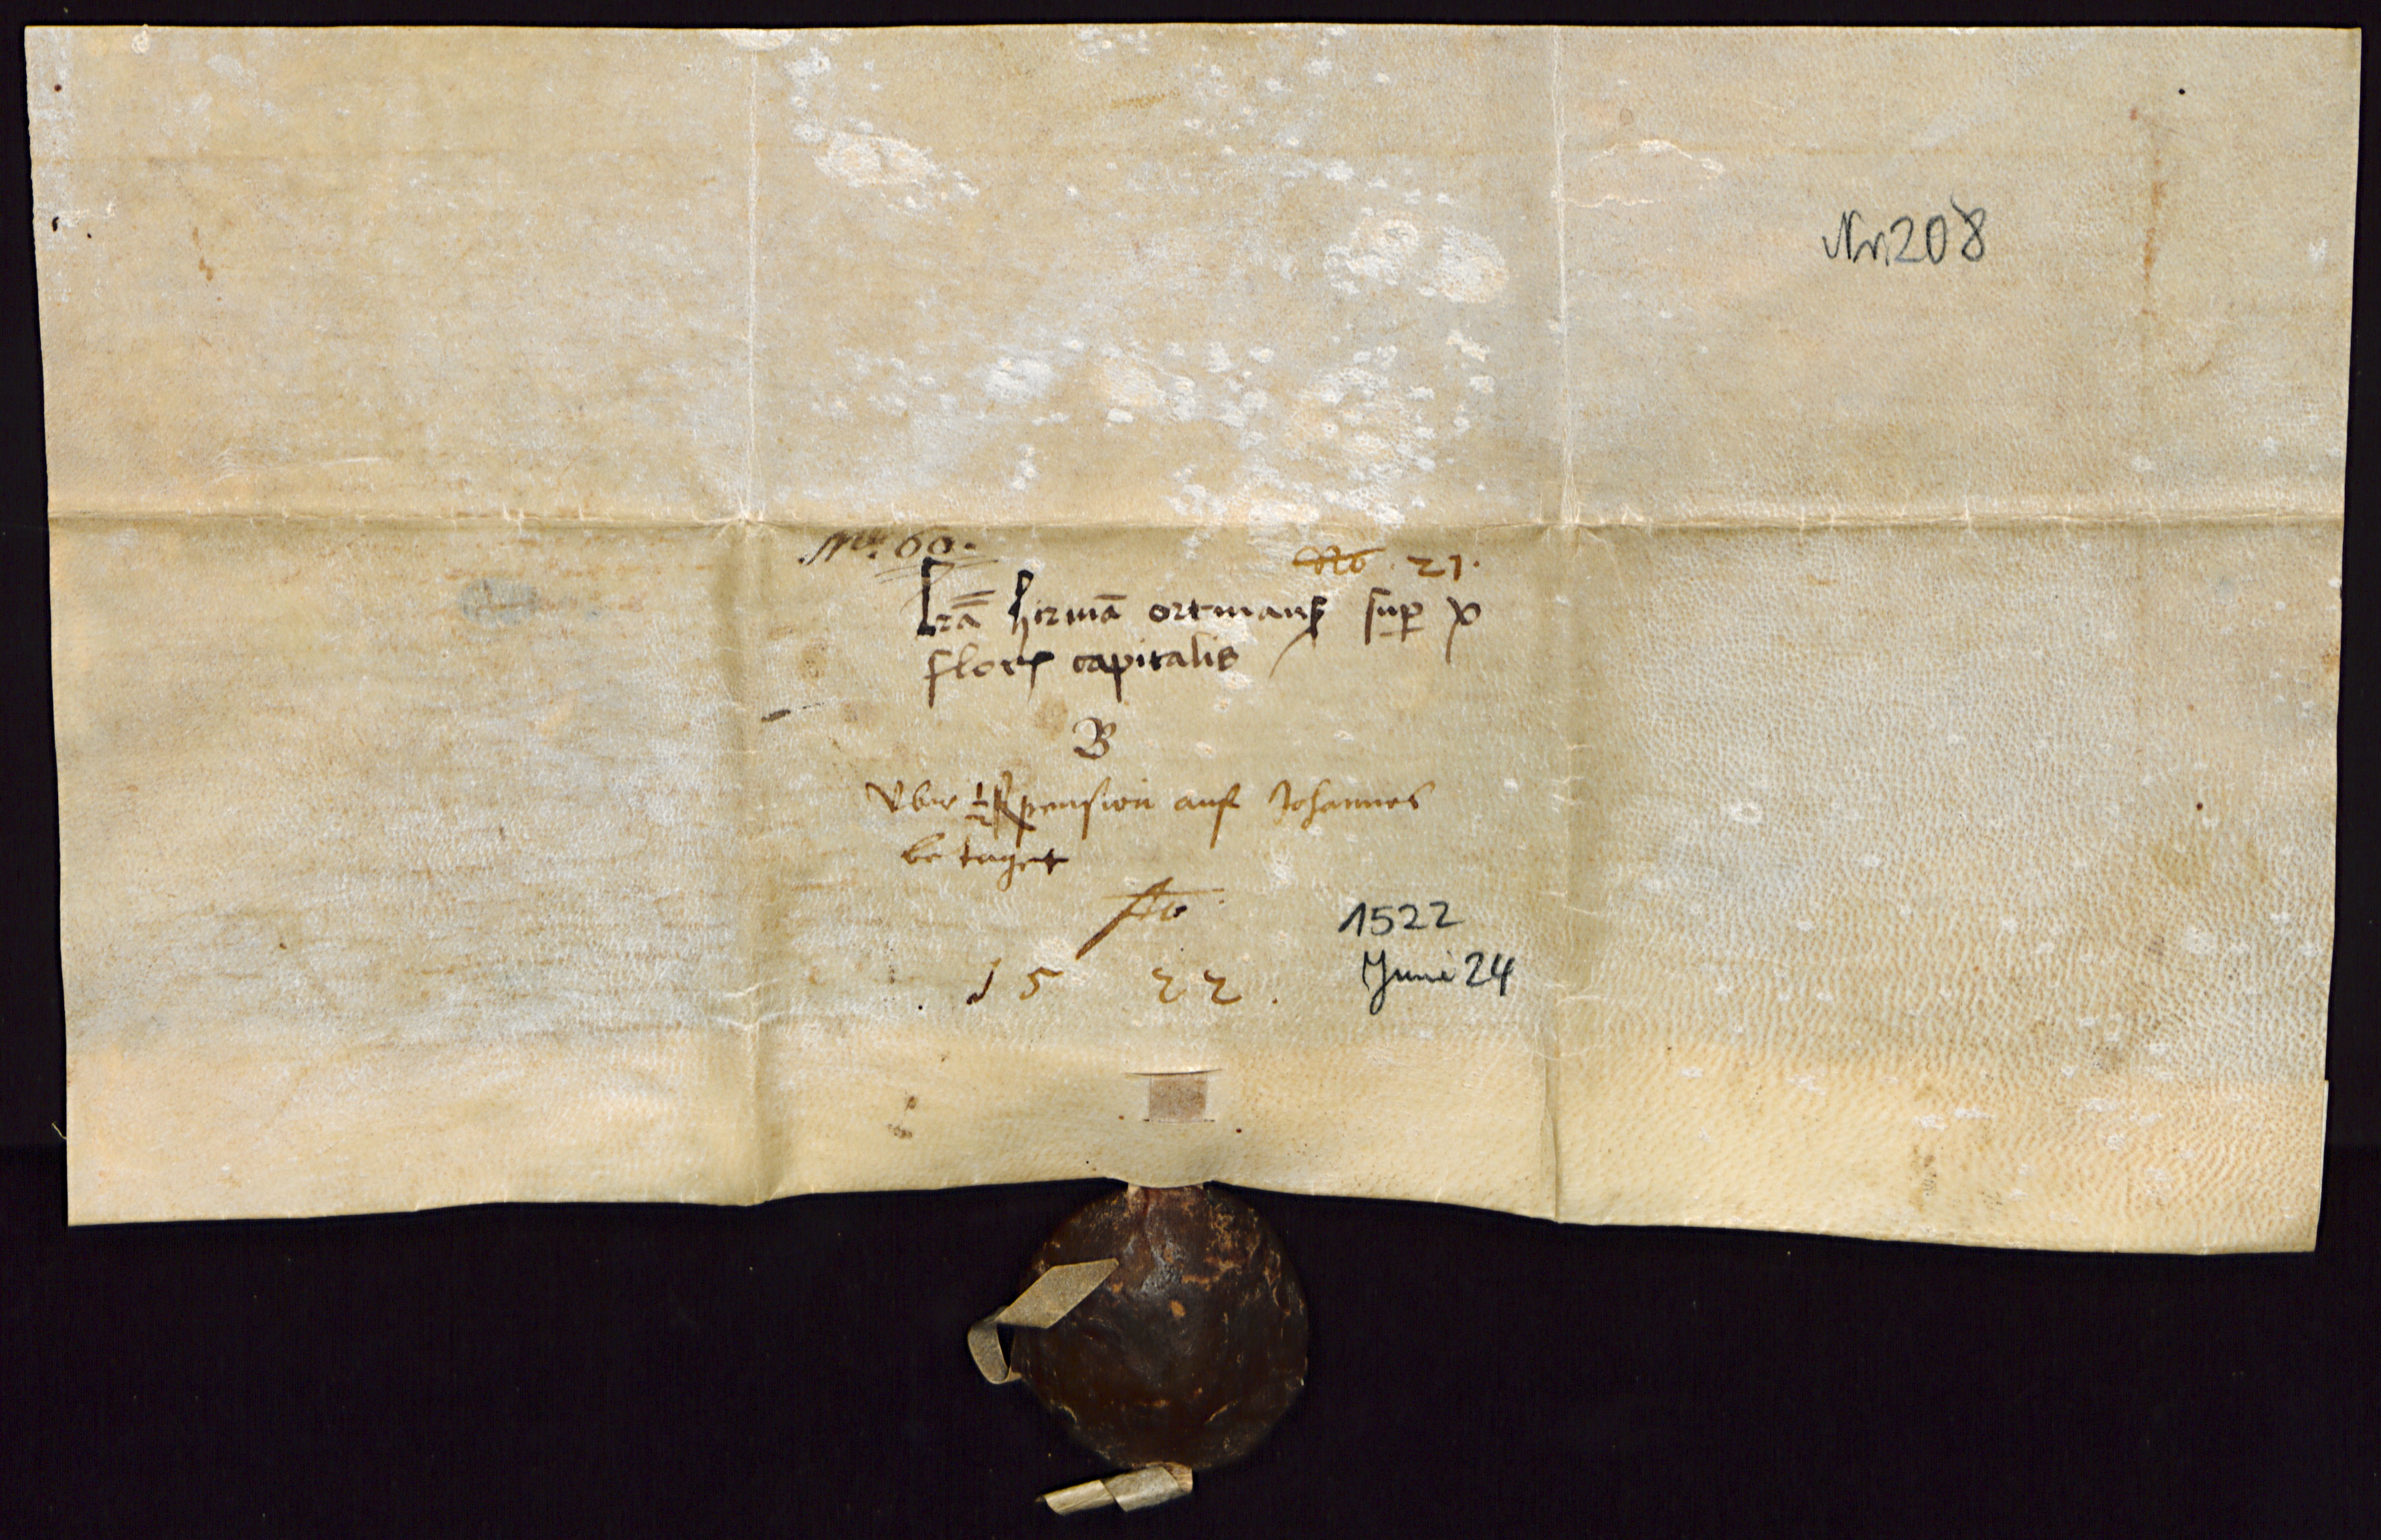 Nr. 208
No. 60.
No. 21.
Lrā hermā ortmans sup x
floreñ capitalis
B
Vber ½ pension auf Johannes
betaget
Ao
15 22.
1522
Juni 24